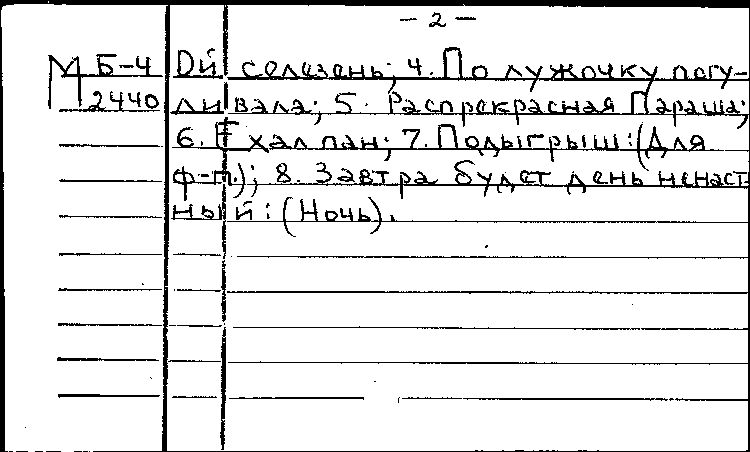 — 2 —
М Б-4 Ой селезень; 4. По лужочку погу-
2440 ливала; 5. Распрекрасная Параша;
6. Ехал пан; 7. Подыгрыш: (Для
ф-п.); 8. Завтра будет день ненаст-
ный: (Ночь).